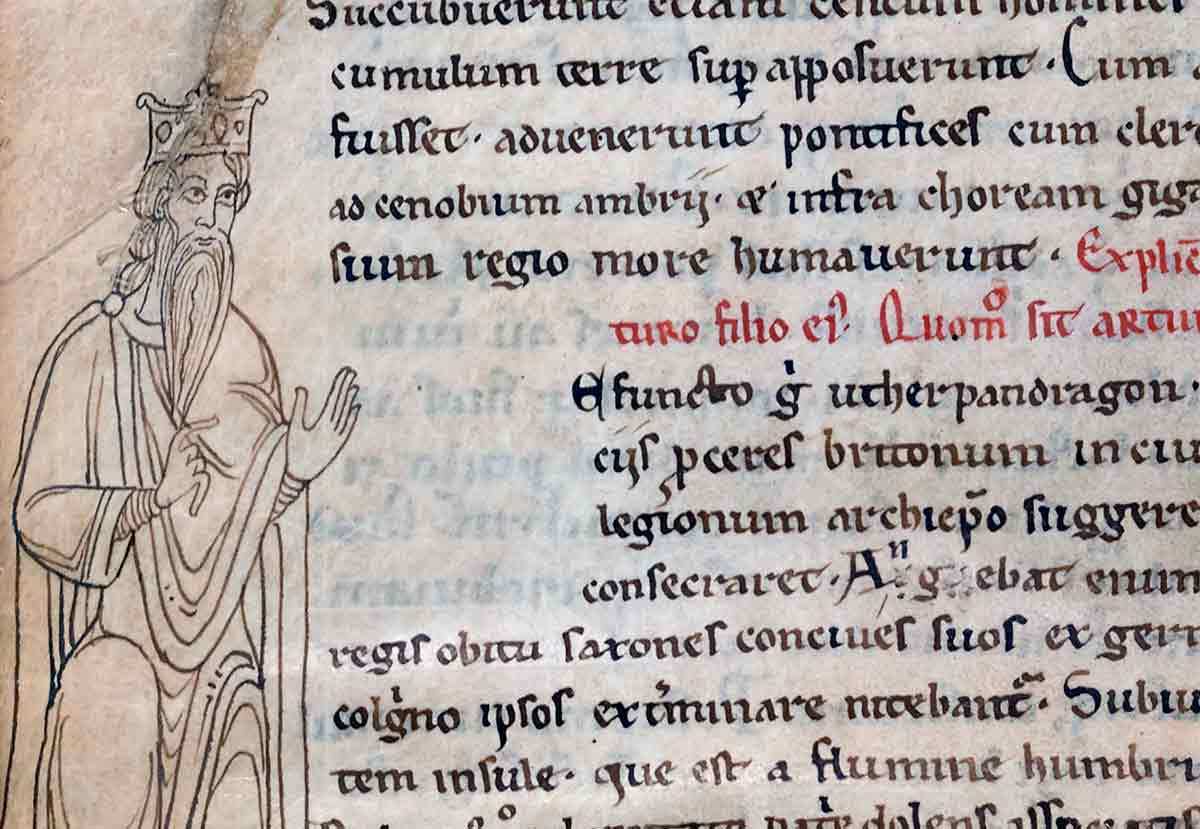 Succubuerunt etiam centum homines
cumulum terre sup̱ apposuerunt. Cum
fuisset. advenerunt pontifices cum cler
ad cenobium ambrij. & infra choream giga
suum regio more humaverunt. Explic̄
turo filio ei'. Quom̊ sit artu
Efuncto gͥ utherpandragon
cijs ꝓceres britonum in ciu
legionum archiep̄o suggere
consecraret. Aͫgebat enim
regis obitu saxones conciues suos ex ger
colgͥno ipsos extͥminare nitebant᷑. Subiu
tem insule. que est a flumine humbri
dolens